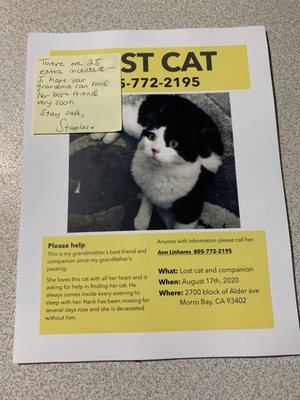 There are 25
extra included —
I hope your
grandma can find
her best friend
very soon.
Stay safe,
Staples
OST CAT
5-772-2195
Please help
This is my grandmother's best friend and
companion since my grandfather's
passing.
She loves this cat with all her heart and is
asking for help in finding her cat. He
always comes inside every evening to
sleep with her. Hank has been missing for
several days now and she is devastated
without him.
Anyone with information please call her:
Ann Linhares 805-772-2195
What: Lost cat and companion
When: August 17th, 2020
Where: 2700 block of Alder ave
Morro Bay, CA 93402